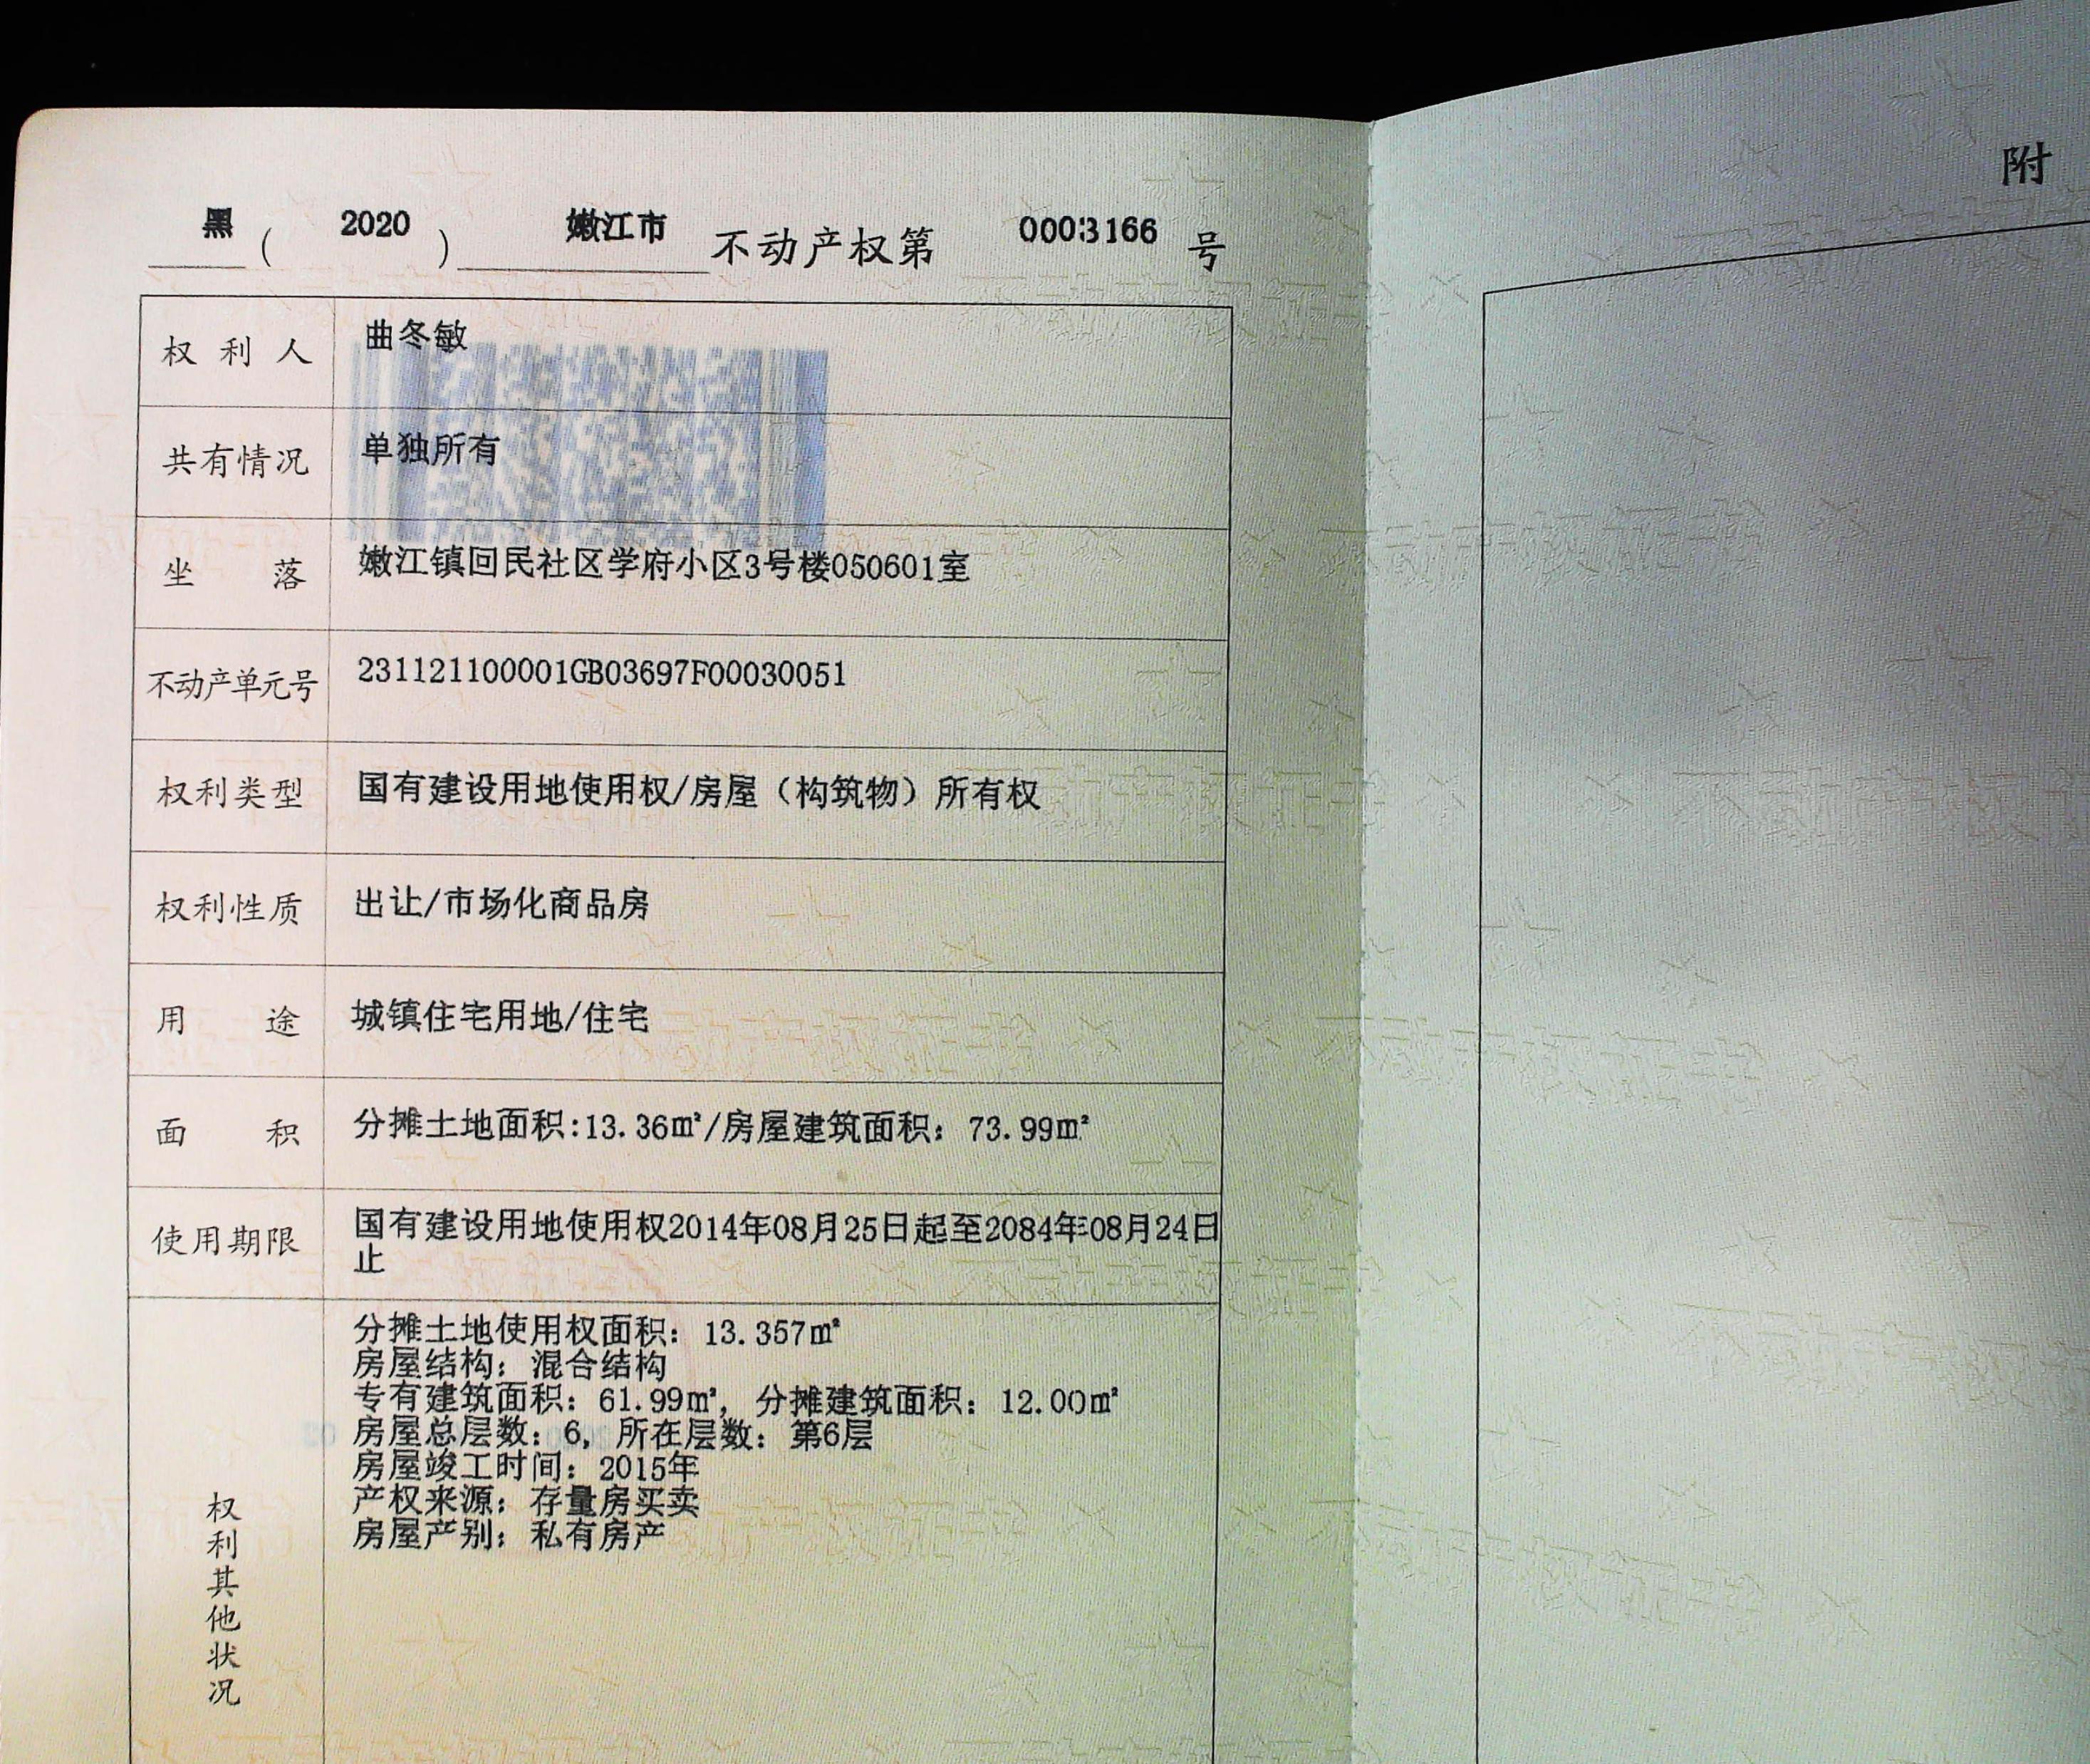 黑 ( 2020 ) 嫩江市 不动产权第 0003166 号
附
权利人 曲冬敏
共有情况 单独所有
坐落 嫩江镇回民社区学府小区3号楼050601室
不动产单元号 231121100001GB03697F00030051
权利类型 国有建设用地使用权/房屋（构筑物）所有权
权利性质 出让/市场化商品房
用途 城镇住宅用地/住宅
面积 分摊土地面积:13.36㎡/房屋建筑面积：73.99㎡
使用期限 国有建设用地使用权2014年08月25日起至2084年08月24日
止
权利其他状况
分摊土地使用权面积：13.357㎡
房屋结构：混合结构
专有建筑面积：61.99㎡，分摊建筑面积：12.00㎡
房屋总层数：6，所在层数：第6层
房屋竣工时间：2015年
产权来源：存量房买卖
房屋产别：私有房产